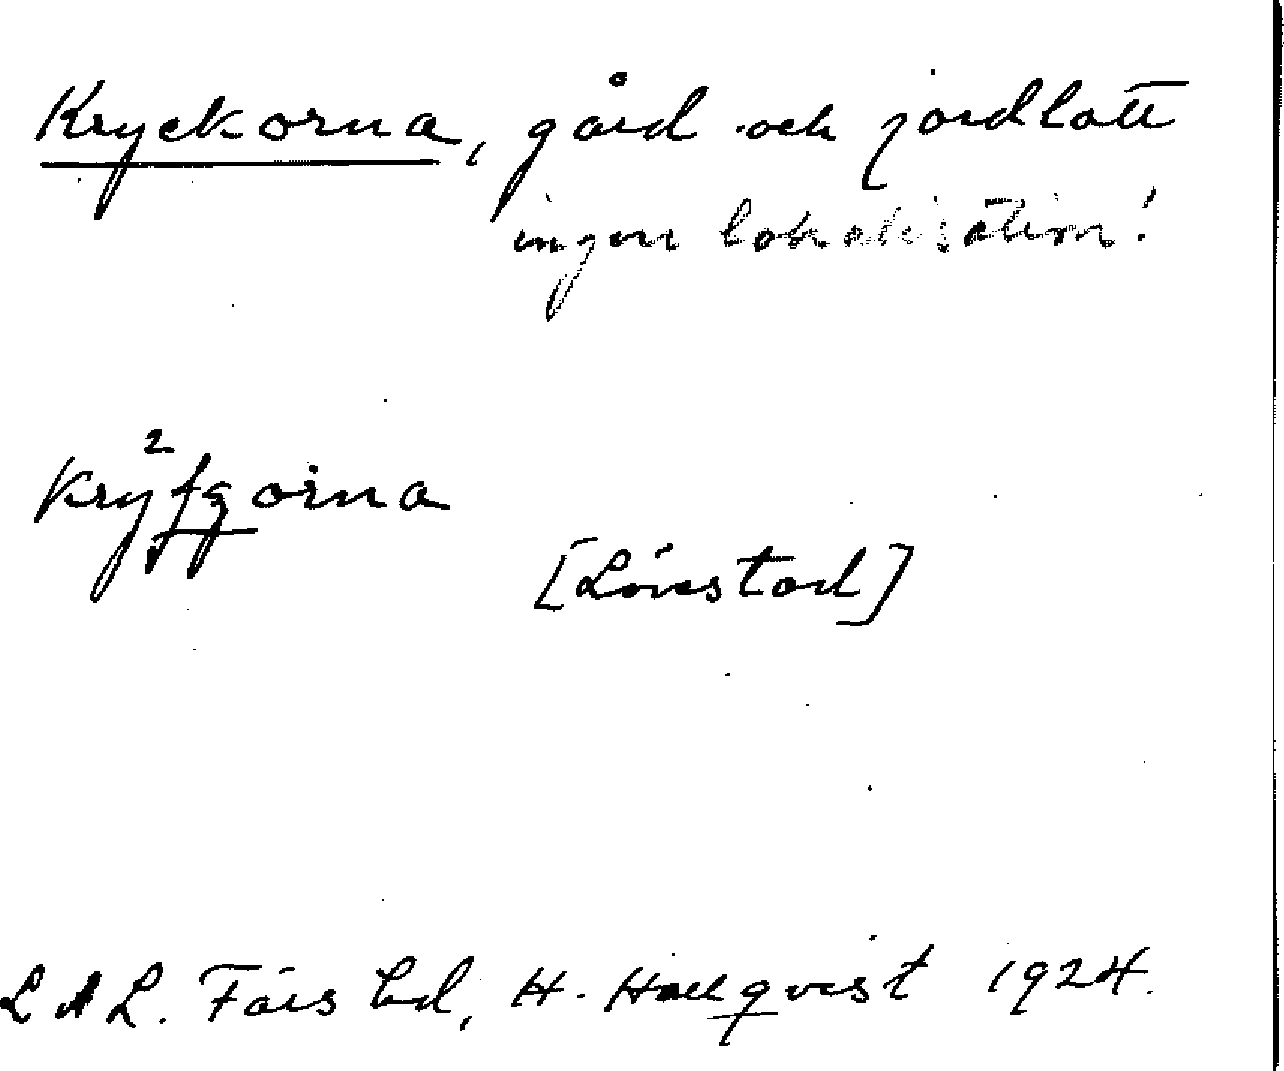 Kryckorna, gård och jordlott
ingen lokalisation!
[Lövstad]
L A L. Färs hd, H. Hallqvist 1924.